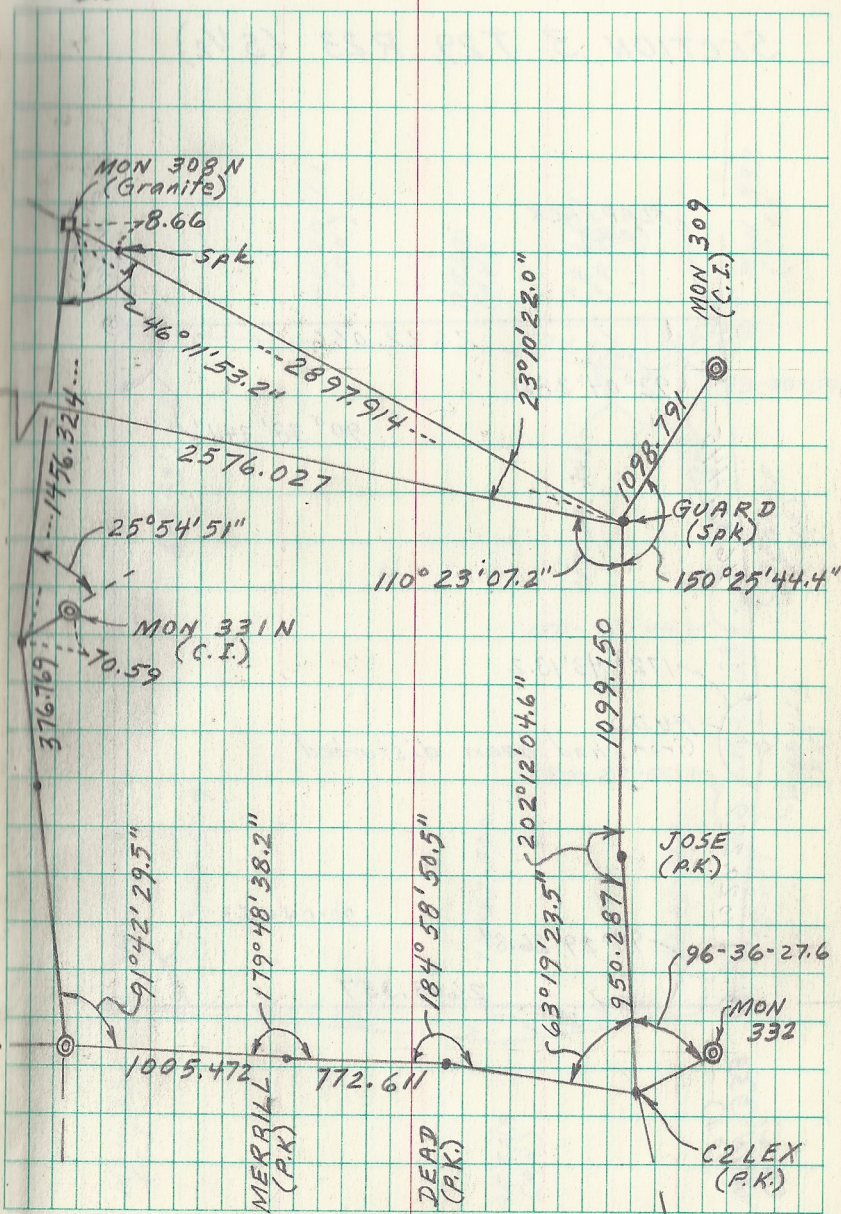 MON 308 N
(Granite)
8.66
Spk
46°11'53.2"
---2897.914---
23°10'22.0"
MON 309
(C.I.)
1098.791
---1456.324---
2576.027
GUARD
(Spk)
25°54'51"
110°23'07.2"
150°25'44.4"
MON 331N
(C.I.)
70.59
376.769
1099.150
202°12'04.6"
JOSE
(P.K.)
91°42'29.5"
179°48'38.2"
184°58'50.5"
63°19'23.5"
950.287
96-36-27.6
MON
332
1005.472
772.611
MERRILL
(P.K.)
DEAD
(P.K.)
C2LEX
(P.K.)